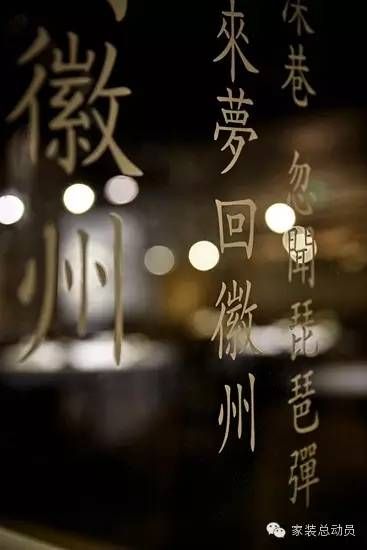 深巷 忽聞琵琶彈
來夢回徽州
徽州
家装总动员